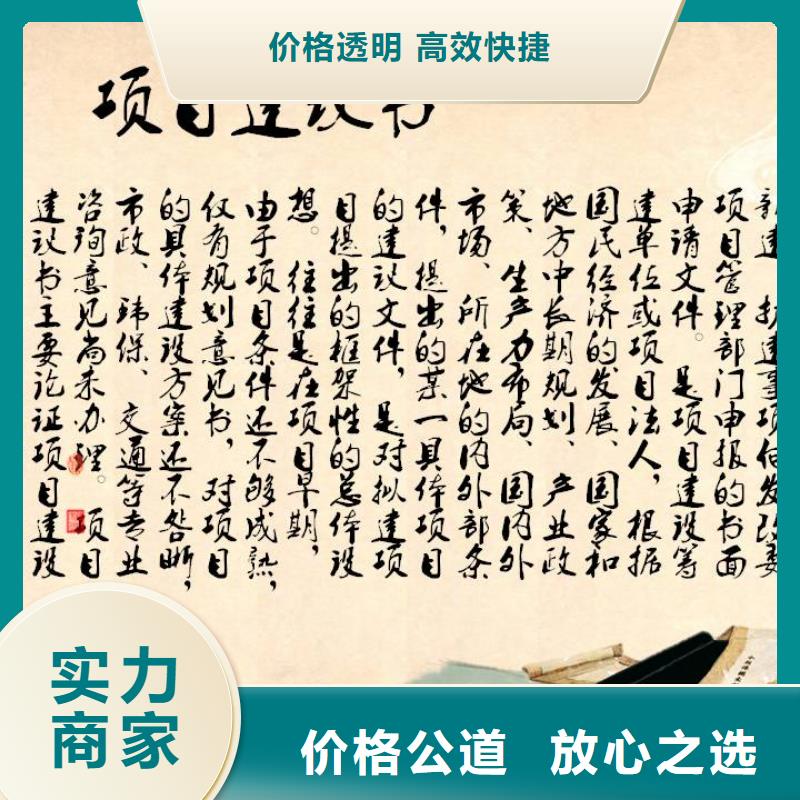 价格透明 高效快捷
项目建议书
新建 扩建事项向发改委
项目管理部门申报的书面
申请文件。是项目建设筹
建单位或项目法人，根据
国民经济的发展、国家和
地方中长期规划、产业政
策、生产力布局、国内外
市场、所在地的内外部条
件，提出的某一具体项目
的建议文件，是对拟建项
目提出的框架性的总体设
想。往往是在项目早期，
由于项目条件还不够成熟，
仅有规划意见书，对项目
的具体建设方案还不咎晰，
市政、玮保、交通等专业
咨询意见尚未办理。项目
建议书主要论证项目建设
实力
商家
价格公道 放心之选